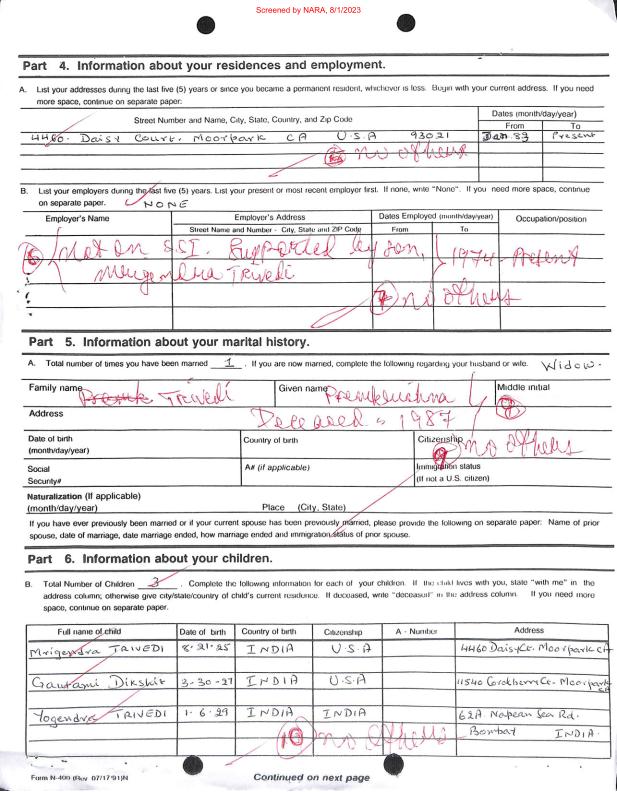 Screened by NARA, 8/1/2023
Part 4. Information about your residences and employment.
A. List your addresses during the last five (5) years or since you became a permanent resident, whichever is less. Begin with your current address. If you need
more space, continue on separate paper:
Street Number and Name, City, State, Country, and Zip Code
Dates (month/day/year)
From To
4460. Daisy Court. Moorpark CA U.S.A 93021 Jan. 83 Present
no others
B. List your employers during the last five (5) years. List your present or most recent employer first. If none, write "None". If you need more space, continue
on separate paper. NONE
Employer's Name Employer's Address Dates Employed (month/day/year) Occupation/position
Street Name and Number - City, State and ZIP Code From To
6 Not on SSI. Supported by son, 1974 - Present
Mrigendra Trivedi
7 no others
Part 5. Information about your marital history.
A. Total number of times you have been married 1 . If you are now married, complete the following regarding your husband or wife. Widow.
Family name Trivedi Given name Premkrishna Middle initial
8
Address Deceased 1987
Date of birth Country of birth Citizenship 9 no others
(month/day/year)
Social A# (if applicable) Immigration status
Security# (If not a U.S. citizen)
Naturalization (If applicable)
(month/day/year) Place (City, State)
If you have ever previously been married or if your current spouse has been previously married, please provide the following on separate paper: Name of prior
spouse, date of marriage, date marriage ended, how marriage ended and immigration status of prior spouse.
Part 6. Information about your children.
B. Total Number of Children 3 . Complete the following information for each of your children. If the child lives with you, state "with me" in the
address column; otherwise give city/state/country of child's current residence. If deceased, write "deceased" in the address column. If you need more
space, continue on separate paper.
Full name of child Date of birth Country of birth Citizenship A - Number Address
Mrigendra TRIVEDI 8-21-25 INDIA U.S.A 4460 Daisy Ct. Moorpark CA
Gautami Dikshit 3-30-27 INDIA U.S.A 11540 Moorpark CA
Yogendra TRIVEDI 1-6-29 INDIA INDIA 62A. Napean Sea Rd.
10 no others Bombay INDIA.
Form N-400 (Rev 07/17/91)N Continued on next page